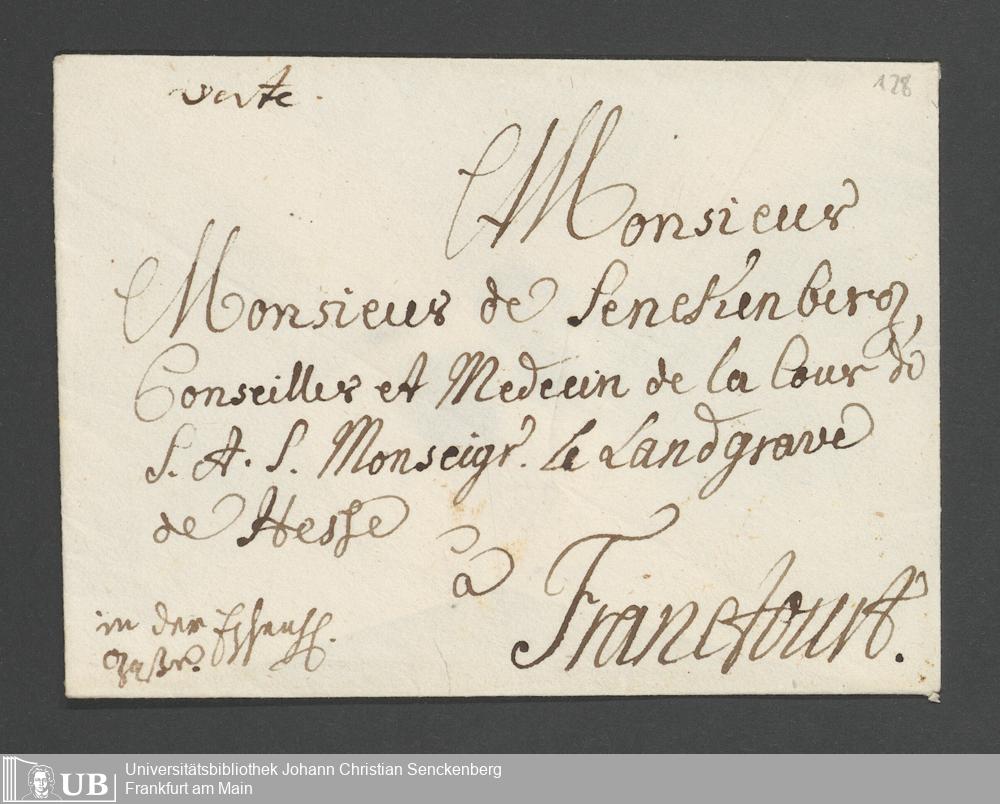 verte.
128
Monsieur
Monsieur de Senckenberg,
Conseiller et Medecin de la Cour de
S. A. S. Monseigr. le Landgrave
de Hesse
a
Francfourt.
in der
UB
Universitätsbibliothek Johann Christian Senckenberg
Frankfurt am Main